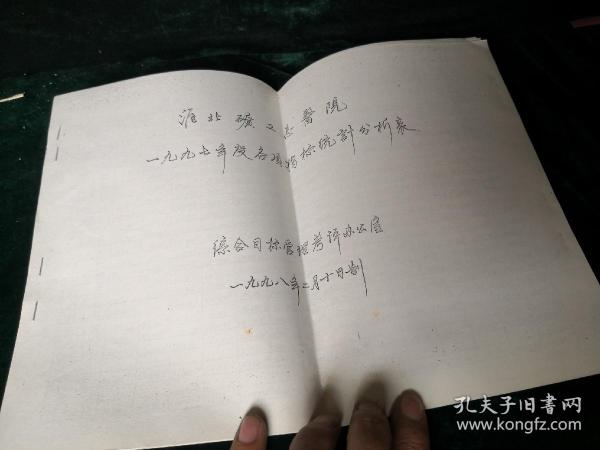 淮北矿工总医院
一九九七年度各项指标统計分析表
综合目标管理考评办公室
一九九八年二月十日制
孔夫子旧书网
www.kongfz.com